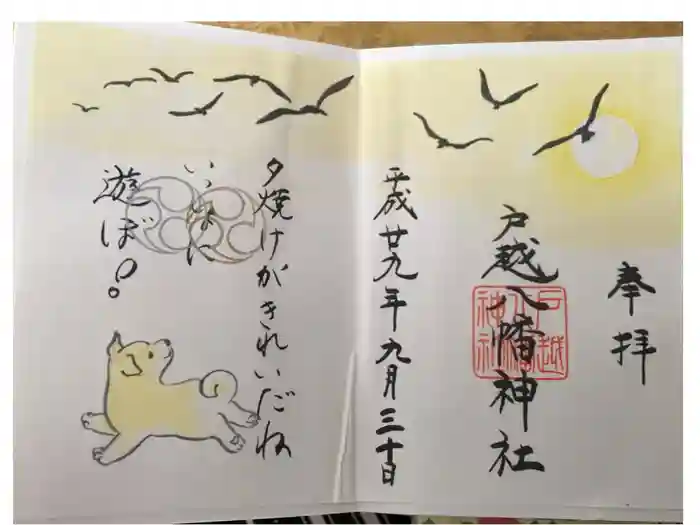 奉拝
戸越八幡神社
戸越
八幡
神社
平成廿九年九月三十日
夕焼けがきれいだね
いっしょに
遊ぼ!